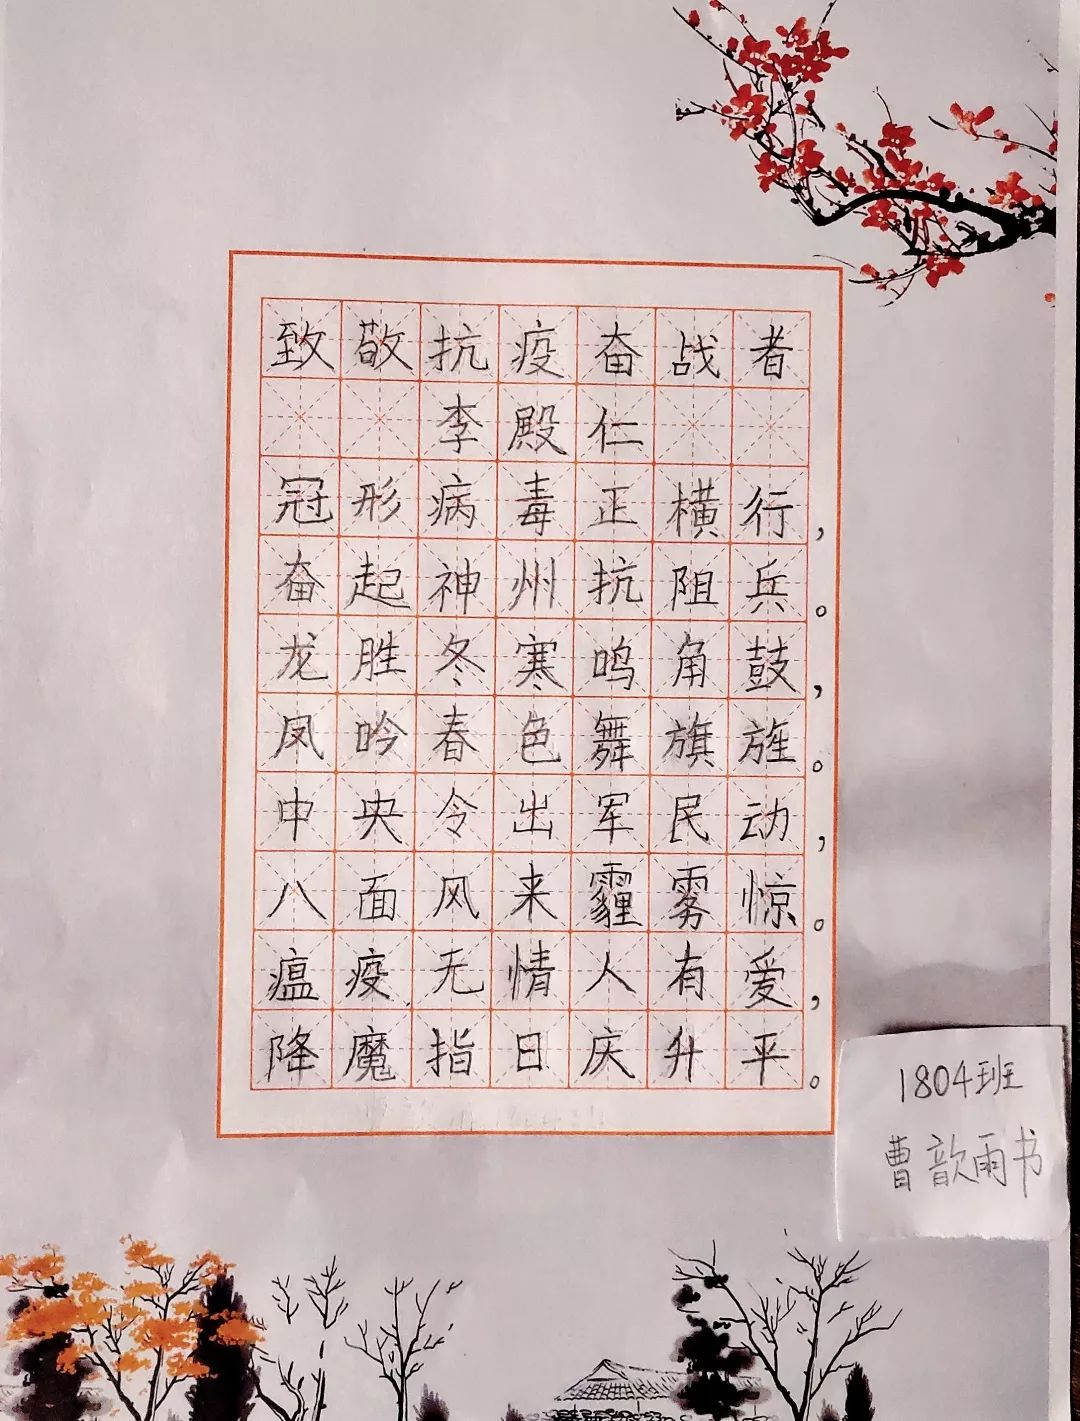 致敬抗疫奋战者
李殿仁
冠形病毒正横行，
奋起神州抗阻兵。
龙胜冬寒鸣角鼓，
凤吟春色舞旗旌。
中央令出军民动，
八面风来霾雾惊。
瘟疫无情人有爱，
降魔指日庆升平。
1804班
曹歆雨书